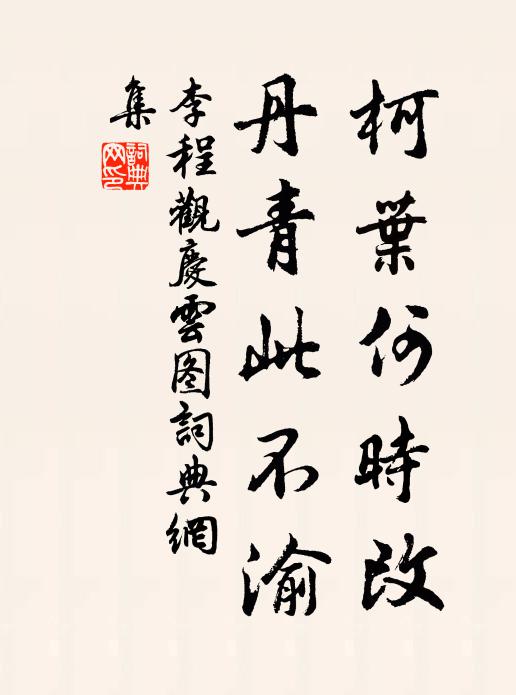 柯葉何時改
丹青此不渝
李程觀慶雲图詞典網
集
詞典網印